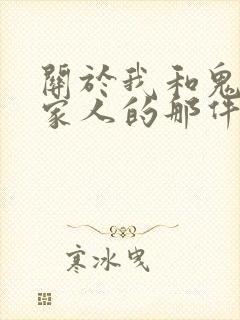 關於我和鬼
家人的那件
寒冰曳